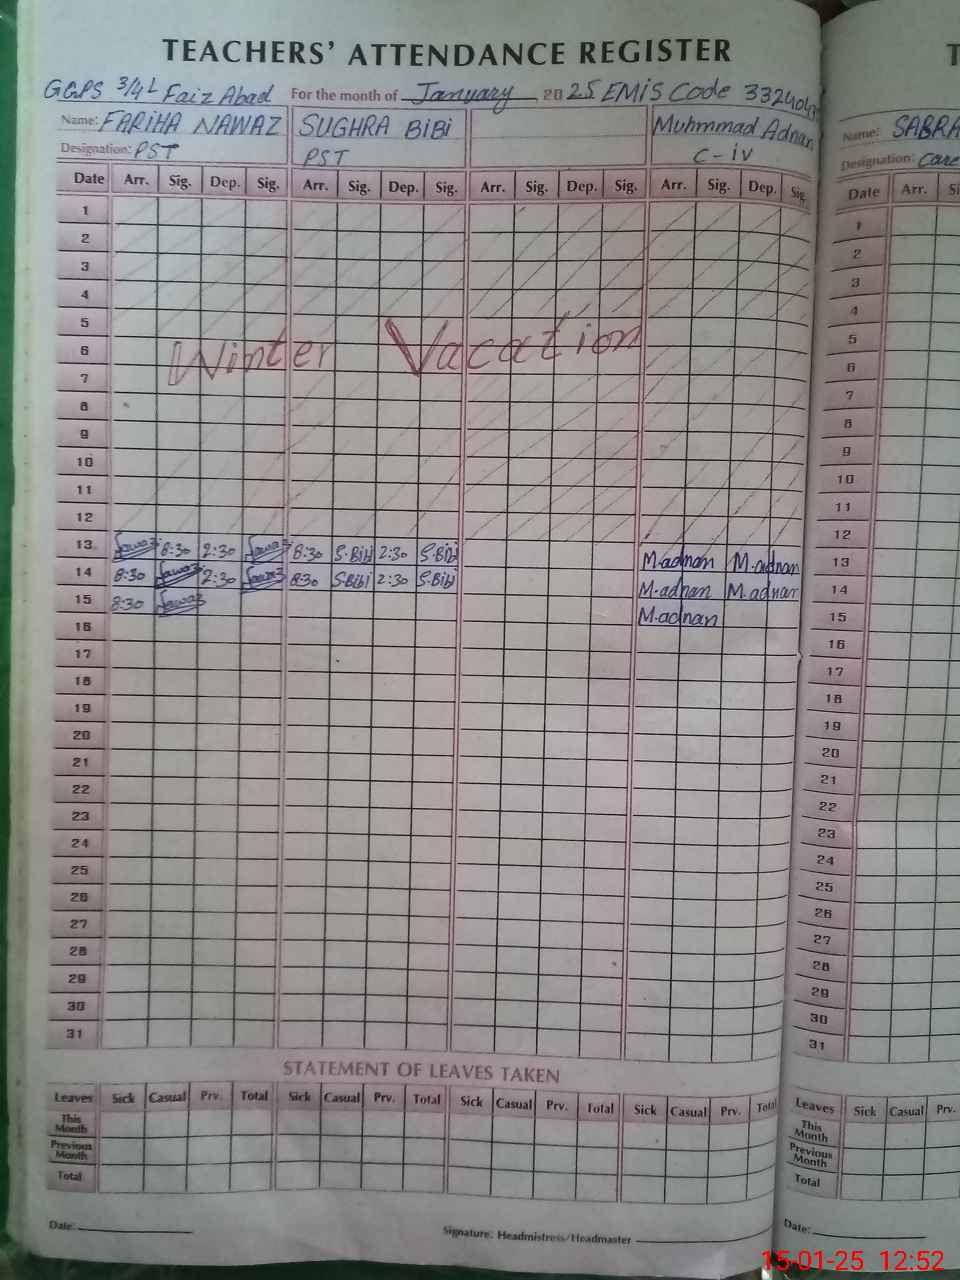 TEACHERS' ATTENDANCE REGISTER
GGPS 3/4L Faiz Abad For the month of January, 2025 EMiS Code
Name: FARIHA NAWAZ SUGHRA BiBi Muhmmad Adnan
Designation: PST PST C-iv
Date Arr. Sig. Dep. Sig. Arr. Sig. Dep. Sig. Arr. Sig. Dep. Sig. Arr. Sig. Dep. Sig.
1
2
3
4
5
6
Winter Vacation
7
8
9
10
11
12
13 Nawaz 8:30 2:30 Nawaz 8:30 S.Bibi 2:30 S.Bibi M.adnan M.adnan
14 8:30 Nawaz 2:30 Nawaz 8:30 S.Bibi 2:30 S.Bibi M.adnan M.adnan
15 8:30 Nawaz M.adnan
16
17
18
19
20
21
22
23
24
25
26
27
28
29
30
31
STATEMENT OF LEAVES TAKEN
Leaves Sick Casual Prv. Total Sick Casual Prv. Total Sick Casual Prv. Total Sick Casual Prv. Total
This Month
Previous Month
Total
Date: Signature: Headmistress/Headmaster
Name: SABRA
Designation: Care
Date Arr.
1
2
3
4
5
6
7
8
9
10
11
12
13
14
15
16
17
18
19
20
21
22
23
24
25
26
27
28
29
30
31
Leaves Sick Casual Prv.
This Month
Previous Month
Total
Date:
15-01-25 12:52